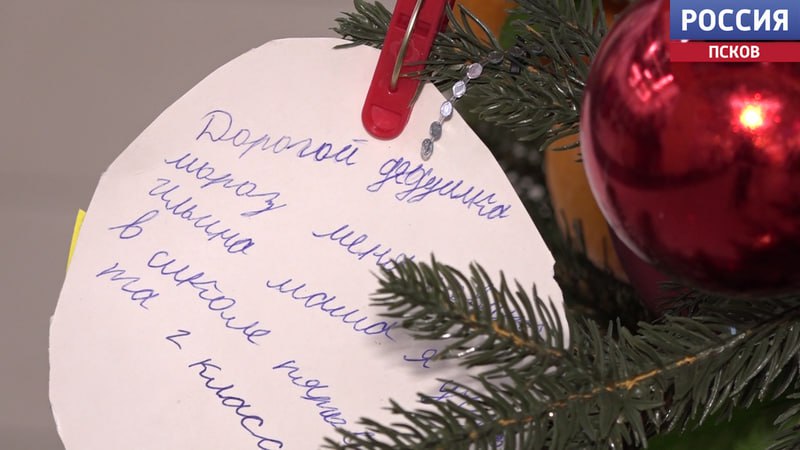 РОССИЯ
ПСКОВ
Дорогой дедушка
мороз
ильина маша я
в школе
та 2 класс